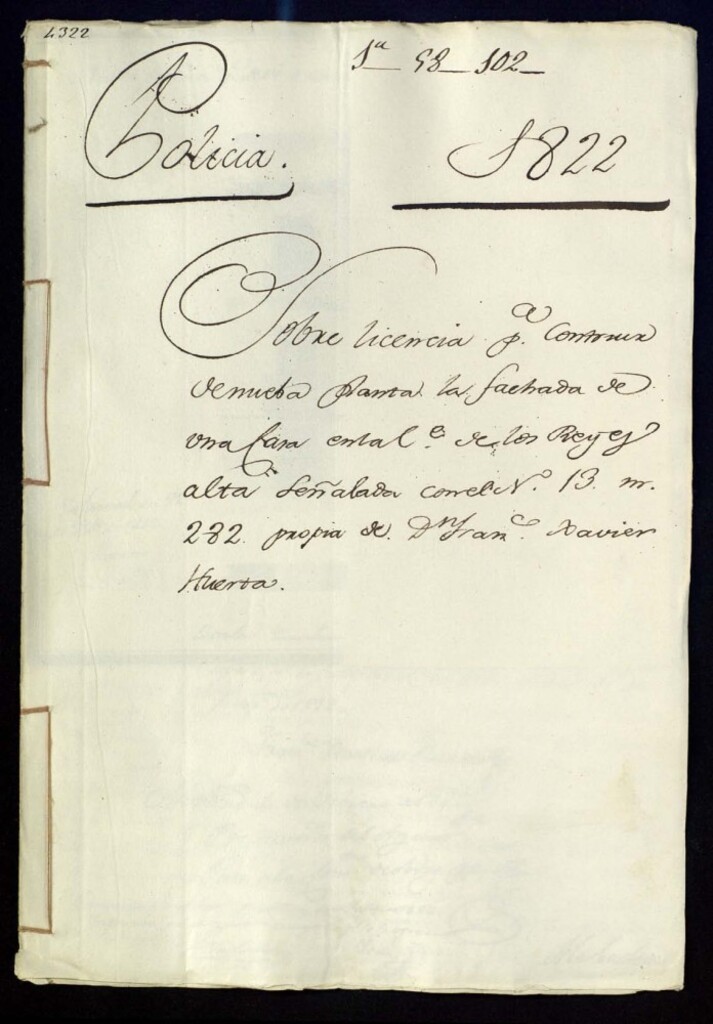 4322
1ª 58 - 102
Policia.
1822
Sobre licencia pª. Construir
de nueba Planta la fachada de
una Casa en la C.e de los Reyes
alta Señalada con el Nº. 13. m.
282 propia de Dn Franco. Xavier
Huerta.